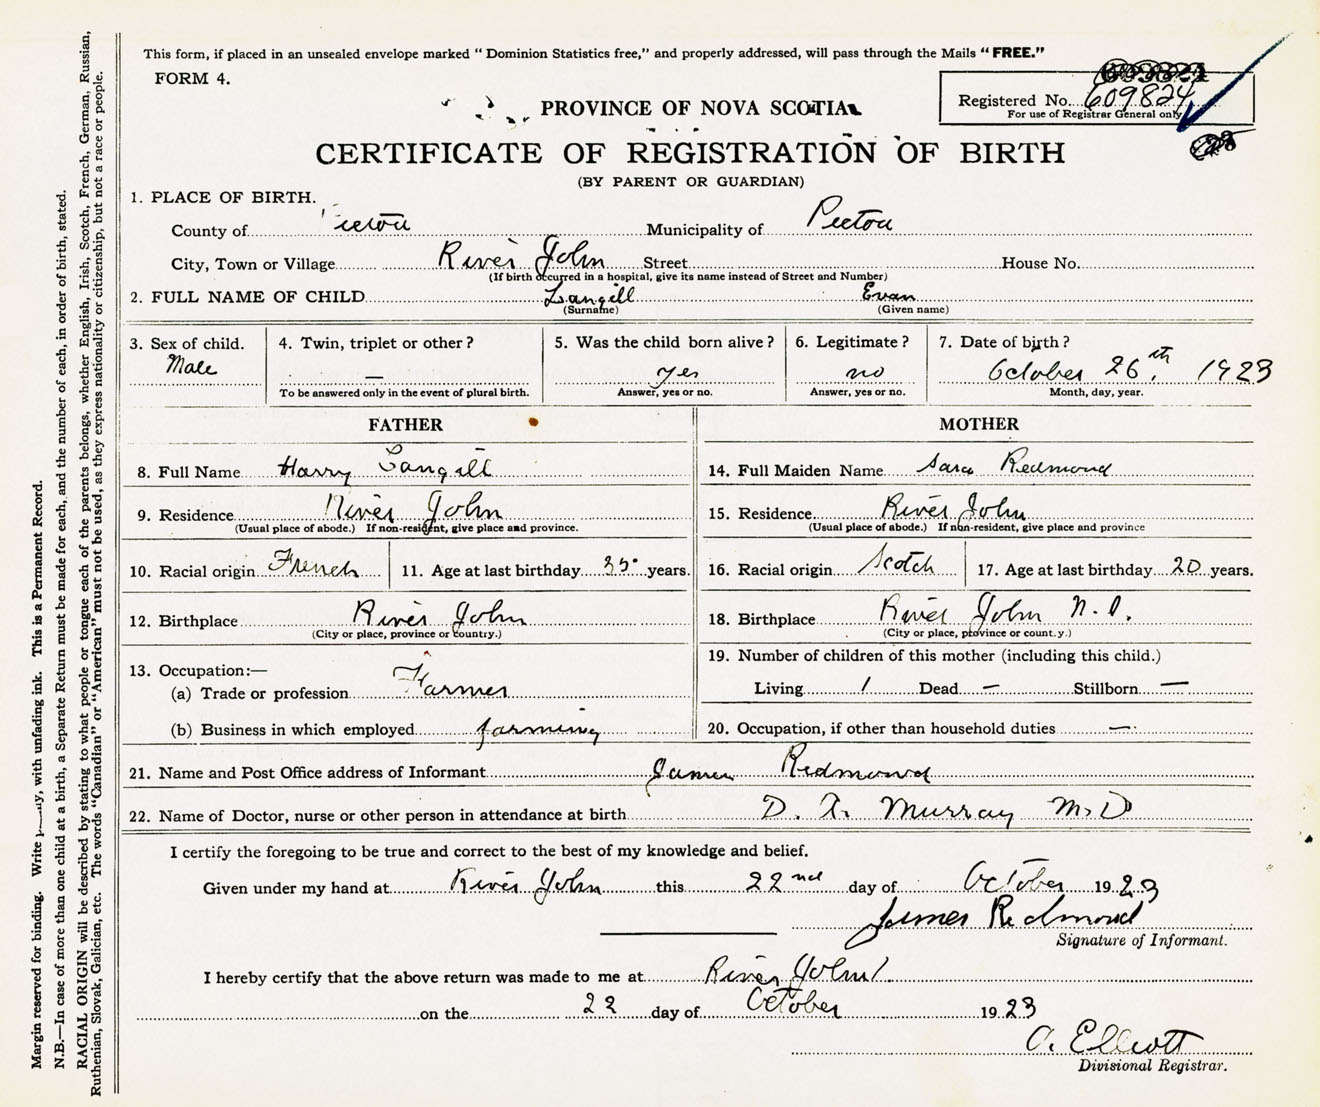 This form, if placed in an unsealed envelope marked " Dominion Statistics free," and properly addressed, will pass through the Mails " FREE."
FORM 4.
Registered No. 609824
For use of Registrar General only
PROVINCE OF NOVA SCOTIA
CERTIFICATE OF REGISTRATION OF BIRTH
(BY PARENT OR GUARDIAN)
1. PLACE OF BIRTH.
County of Pictou Municipality of Pictou
City, Town or Village River John Street House No.
(If birth occurred in a hospital, give its name instead of Street and Number)
2. FULL NAME OF CHILD Langill Evan
(Surname) (Given name)
3. Sex of child. 4. Twin, triplet or other ? 5. Was the child born alive ? 6. Legitimate ? 7. Date of birth ?
Male — yes no October 26th. 1923
To be answered only in the event of plural birth. Answer, yes or no. Answer, yes or no. Month, day, year.
FATHER MOTHER
8. Full Name Harry Langill 14. Full Maiden Name Sara Redmond
9. Residence River John 15. Residence River John
(Usual place of abode.) If non-resident, give place and province. (Usual place of abode.) If non-resident, give place and province
10. Racial origin French 11. Age at last birthday years. 16. Racial origin Scotch 17. Age at last birthday 20 years.
12. Birthplace River John 18. Birthplace River John
(City or place, province or country.) (City or place, province or count.y.)
13. Occupation:— 19. Number of children of this mother (including this child.)
(a) Trade or profession Farmer Living 1 Dead — Stillborn —
(b) Business in which employed farming 20. Occupation, if other than household duties —
21. Name and Post Office address of Informant James Redmond
22. Name of Doctor, nurse or other person in attendance at birth D. A. Murray M.D
I certify the foregoing to be true and correct to the best of my knowledge and belief.
Given under my hand at River John this 22nd day of October 1923
James Redmond
Signature of Informant.
I hereby certify that the above return was made to me at River John
on the 22 day of October 1923
A. Elliott
Divisional Registrar.
Margin reserved for binding. Write with unfading ink. This is a Permanent Record.
N.B.—In case of more than one child at a birth, a Separate Return must be made for each, and the number of each, in order of birth, stated.
RACIAL ORIGIN will be described by stating to what people or tongue each of the parents belongs, whether English, Irish, Scotch, French, German, Russian,
Ruthenian, Slovak, Galician, etc. The words "Canadian" or "American" must not be used, as they express nationality or citizenship, but not a race or people.